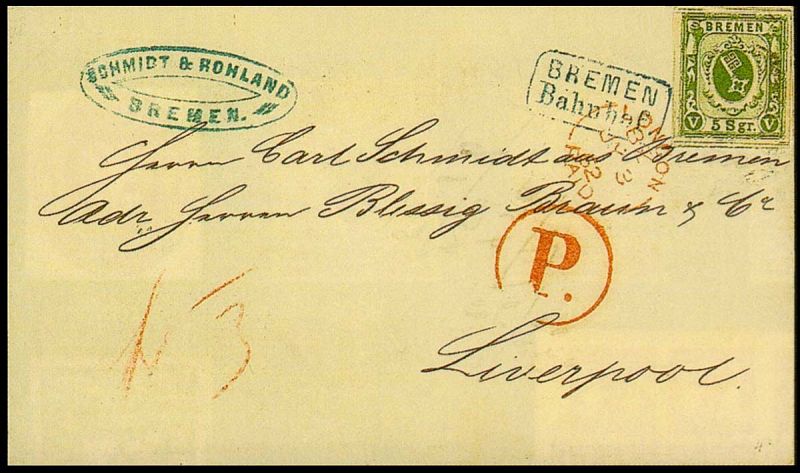 SCHMIDT & ROHLAND
BREMEN.
BREMEN
Bahnhof
BREMEN
V 5 Sgr. V
LONDON
3
62
PAID
Herrn Carl Schmidt aus Bremen
Adr. Herren Blessig Braun & Co
P.
3
Liverpool.